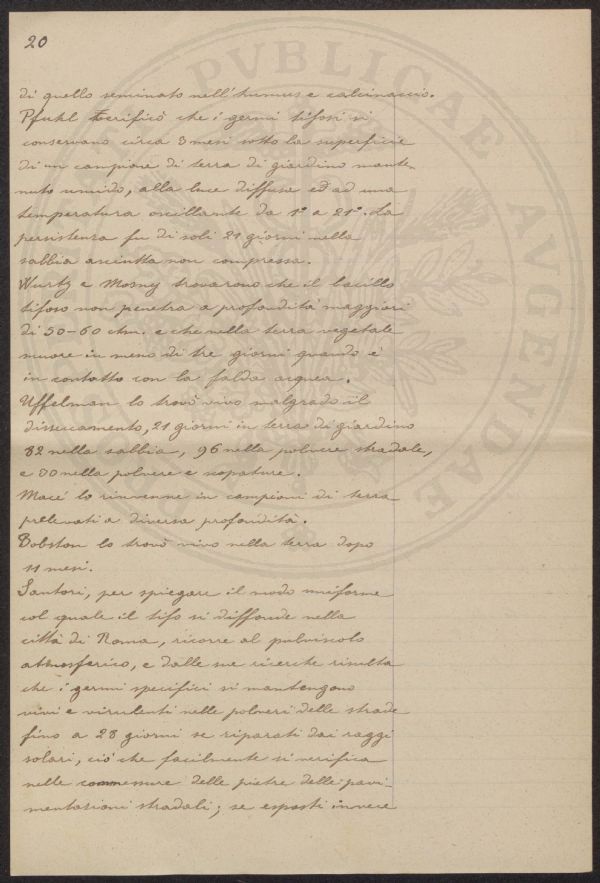 20
di quello seminato nell'humus e calcinaccio.
Pfuhl verificò che i germi tifosi si
conservano circa 3 mesi sotto la superficie
di un campione di terra di giardino mante-
nuto umido, alla luce diffusa ed ad una
temperatura oscillante da 1° a 21°. La
persistenza fu di soli 21 giorni nella
sabbia asciutta non compressa.
Wurtz e Mosny trovarono che il bacillo
tifoso non penetra a profondità maggiori
di 50-60 ctm. e che nella terra vegetale
muore in meno di tre giorni quando è
in contatto con la falda acquea.
Uffelman lo trovò vivo malgrado il
disseccamento, 21 giorni in terra di giardino
82 nella sabbia, 96 nella polvere stradale,
e 30 nella polvere e scopature.
Macé lo rinvenne in campioni di terra
prelevati a diversa profondità.
Bobston lo trovò vivo nella terra dopo
11 mesi.
Santori, per spiegare il modo uniforme
col quale il tifo si diffonde nella
città di Roma, ricorre al pulviscolo
atmosferico, e dalle sue ricerche risulta
che i germi specifici si mantengono
vivi e virulenti nelle polveri delle strade
fino a 28 giorni se riparati dai raggi
solari, ciò che facilmente si verifica
nelle commessure delle pietre delle pavi-
mentazioni stradali; se esposti invece
PVBLICAE AVGENDAE